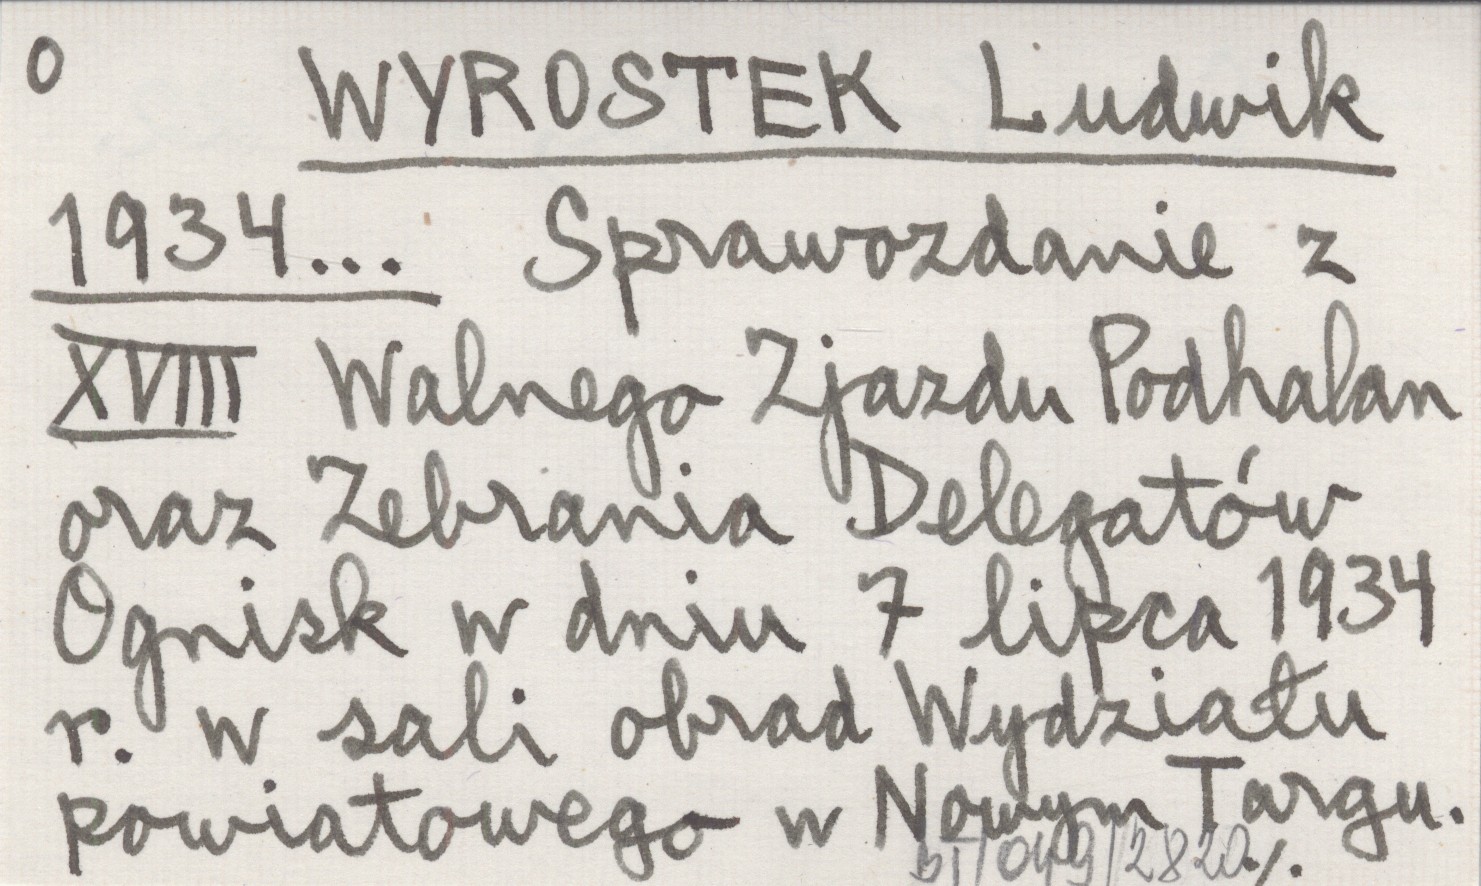 0 WYROSTEK Ludwik
1934... Sprawozdanie z
XVIII Walnego Zjazdu Podhalan
oraz Zebrania Delegatów
Ognisk w dniu 7 lipca 1934
r. w sali obrad Wydziału
powiatowego w Nowym Targu.
bT/049/2820 ./.